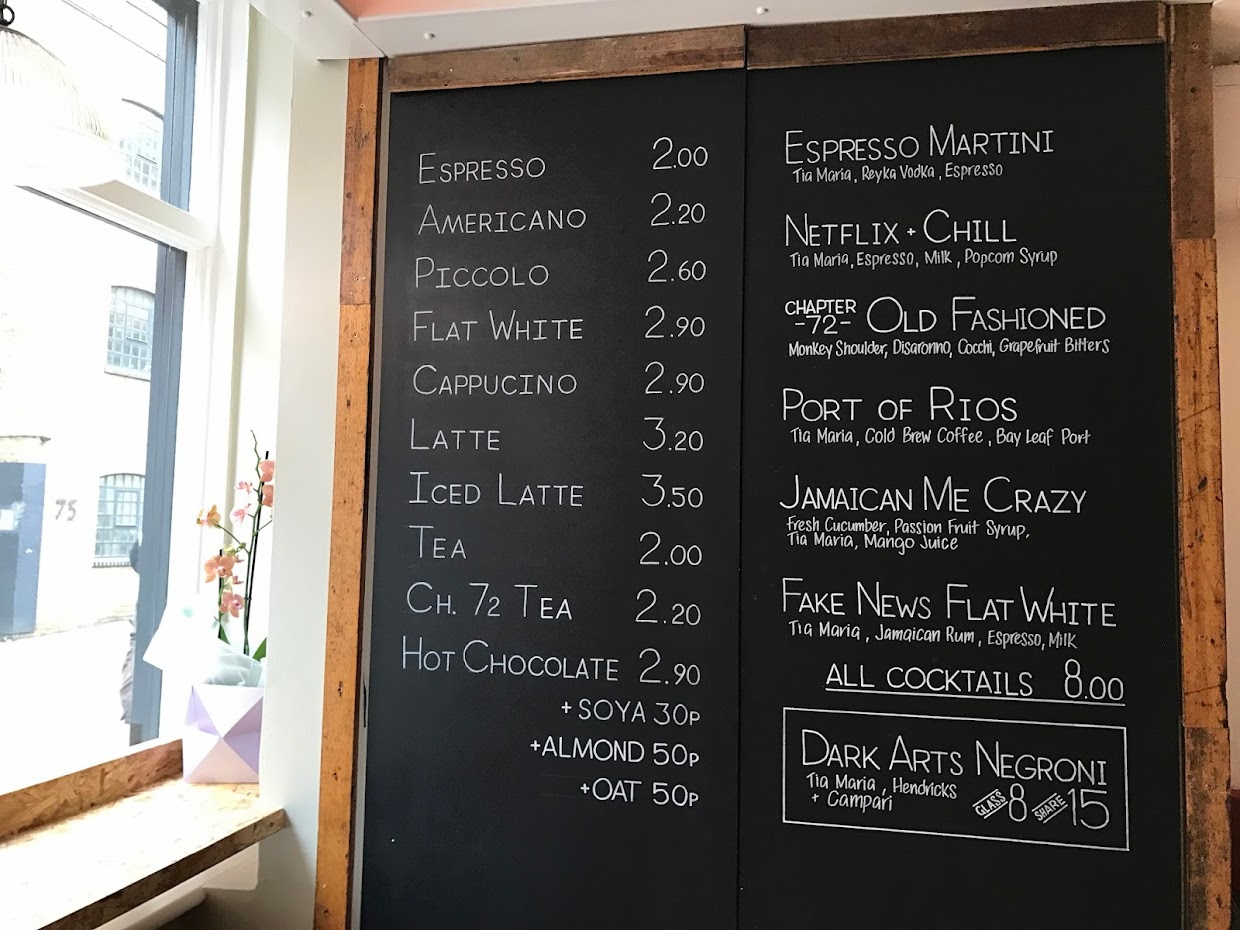 75
Espresso 2.00
Americano 2.20
Piccolo 2.60
Flat White 2.90
Cappucino 2.90
Latte 3.20
Iced Latte 3.50
Tea 2.00
Ch. 72 Tea 2.20
Hot Chocolate 2.90
+ SOYA 30P
+ALMOND 50P
+OAT 50P
Espresso Martini
Tia Maria, Reyka Vodka, Espresso
Netflix + Chill
Tia Maria, Espresso, Milk, Popcorn Syrup
CHAPTER -72- Old Fashioned
Monkey Shoulder, Disaronno, Cocchi, Grapefruit Bitters
Port of Rios
Tia Maria, Cold Brew Coffee, Bay Leaf Port
Jamaican Me Crazy
Fresh Cucumber, Passion Fruit Syrup,
Tia Maria, Mango Juice
Fake News Flat White
Tia Maria, Jamaican Rum, Espresso, Milk
ALL COCKTAILS 8.00
Dark Arts Negroni
Tia Maria, Hendricks
+ Campari GLASS 8 SHARE 15